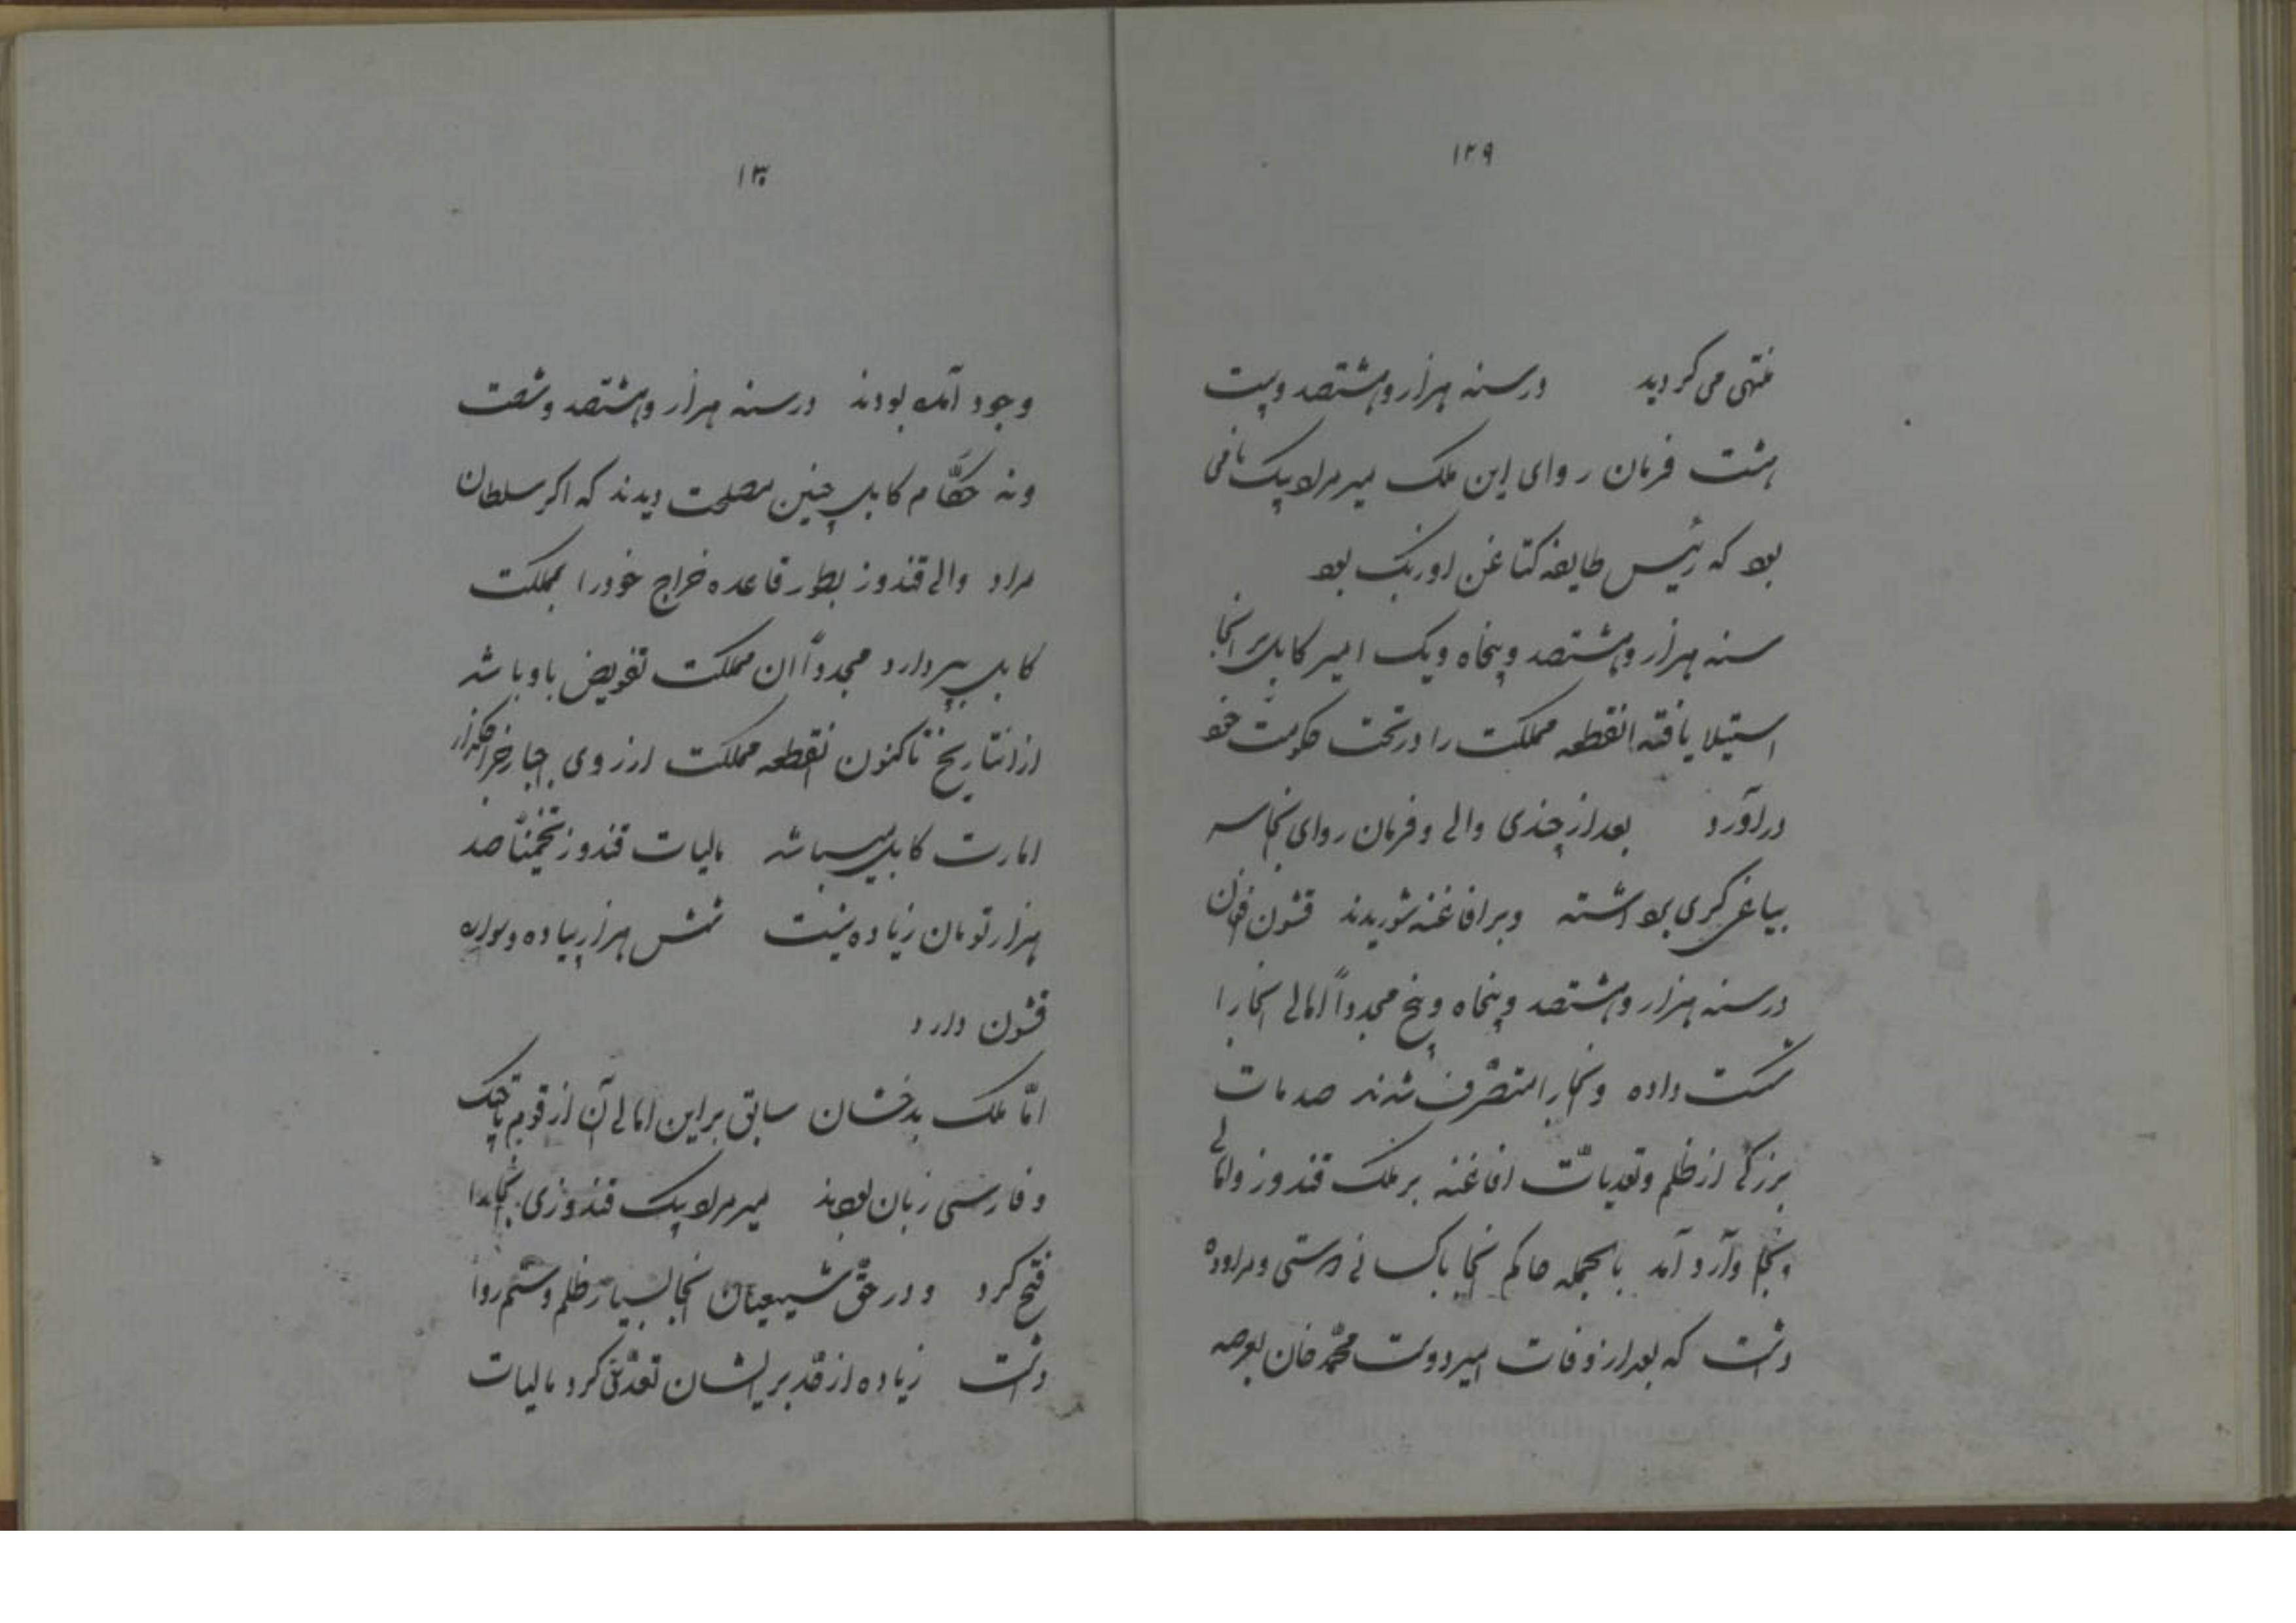 ۱۲۹
منتهی می کردید در سنه هزار و هشتصد و بیست
هشت فرمان روای این ملک میر مراد بیک نامی
بود که رئیس طایفه کتاغن اوزبک بود
سنه هزار و هشتصد و پنجاه و یک امیر کابل بر انجا
استیلا یافته انقطعه مملکت را در تحت حکومت خود
دراورد بعد از چندی والی و فرمان روای انجا سر
بیاغی کری برداشته و بر افاغنه شوریدند قشون افغان
در سنه هزار و هشتصد و پنجاه و پنج مجدداً اهالی انجا را
شکست داده و انجا را متصرّف شدند صدمات
بزرکی از ظلم و تعدیات افاغنه بر ملک قندوز و اهالی
انجا وارد آمد بالجمله حاکم انجا با کسانی دوستی و مراوده
داشت که بعد از وفات امیر دوست محمّد خان بعرصه
۱۳۰
وجود آمده بودند در سنه هزار و هشتصد و شصت
و نه حکّام کابل چنین مصلحت دیدند که اکر سلطان
مراد والی قندوز بطور قاعده خراج خود را بمملکت
کابل بپردازد مجدداً ان مملکت تفویض باو باشد
از انتاریخ تاکنون انقطعه مملکت از روی اجبار خراجکزار
امارت کابل میباشد مالیات قندوز تخمیناً صد
هزار تومان زیاده نیست شش هزار پیاده و سواره
قشون دارد
امّا ملک بدخشان سابق بر این اهالی آن از قوم تاجیک
و فارسی زبان بودند میر مراد بیک قندوزی انجا را
فتح کرد و در حقّ شیعیان انجا بسیار ظلم و ستم روا
داشت زیاده از قدر بر ایشان تعدّی کرد مالیات